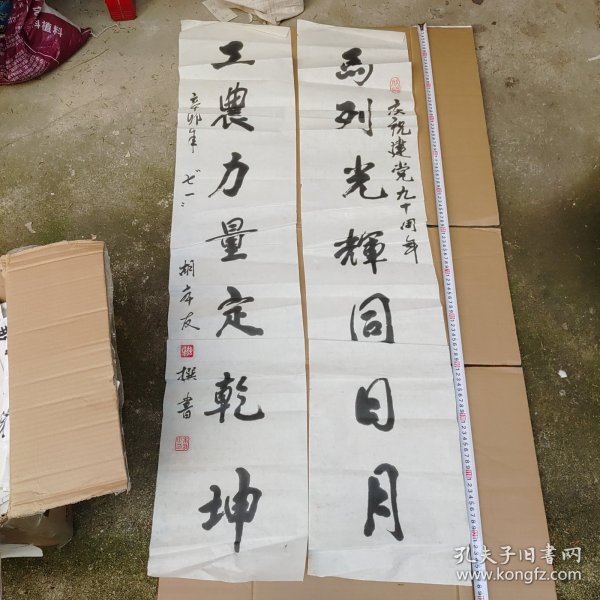 馬列光輝同日月
庆祝建党九十周年
工農力量定乾坤
辛卯年 七一
胡
撰書
孔夫子旧書网
www.kongfz.com